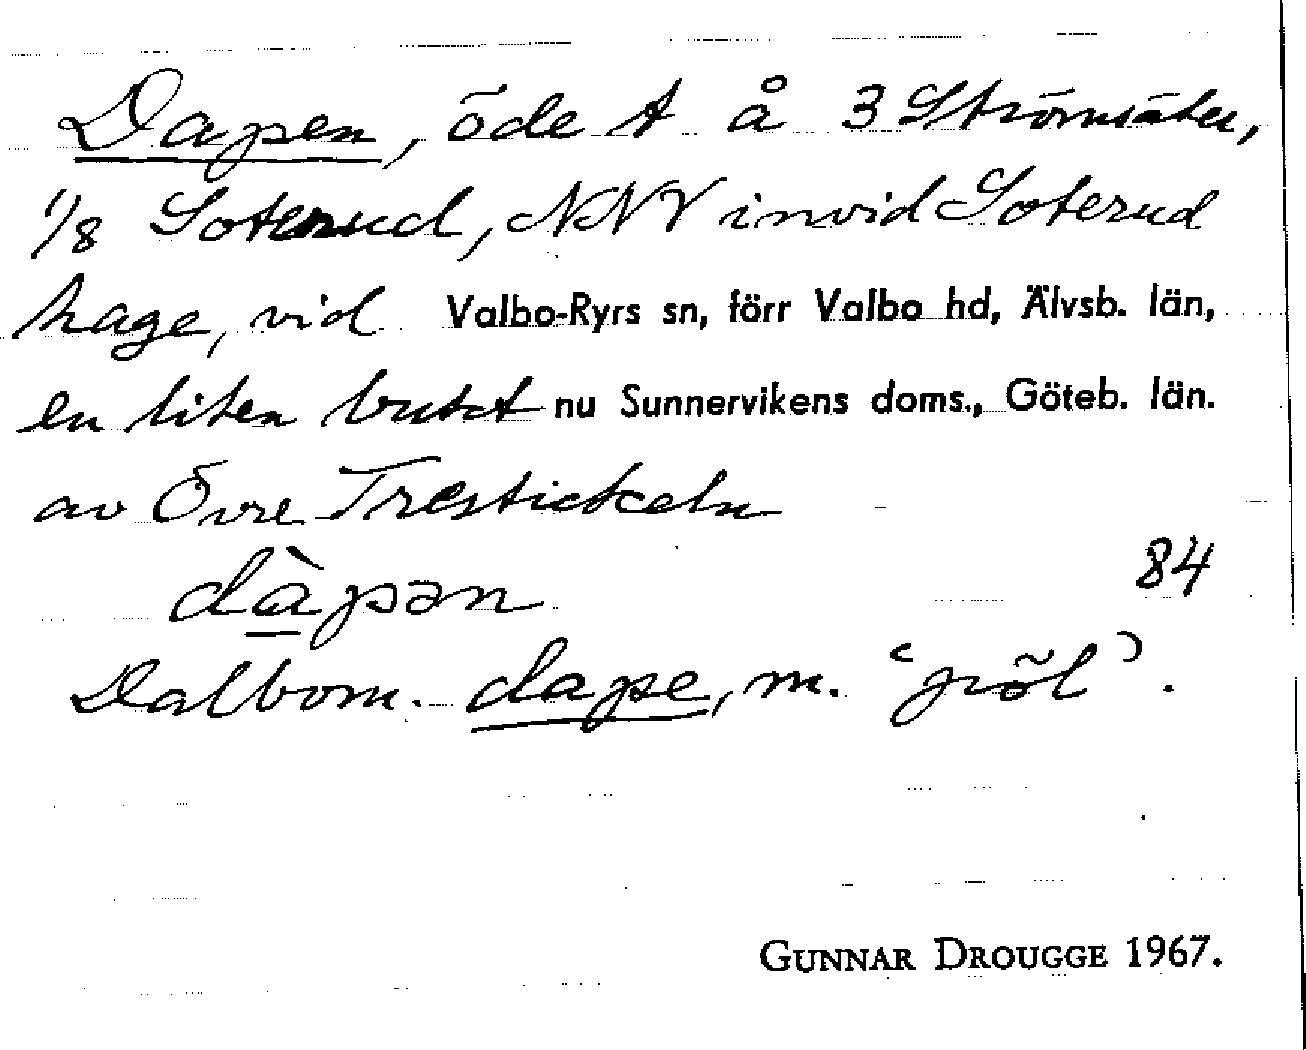 Dapen, öde t å 3 Strömsäter,
1/8 Soterud, NNV invid Soterud
hage, vid Valbo-Ryrs sn, förr Valbo hd, Älvsb. län,
en liten bukt nu Sunnervikens doms., Göteb. län.
av Övre Trestickeln
dàpən 84
Dalbom. dape, m. 'pöl'.
GUNNAR DROUGGE 1967.